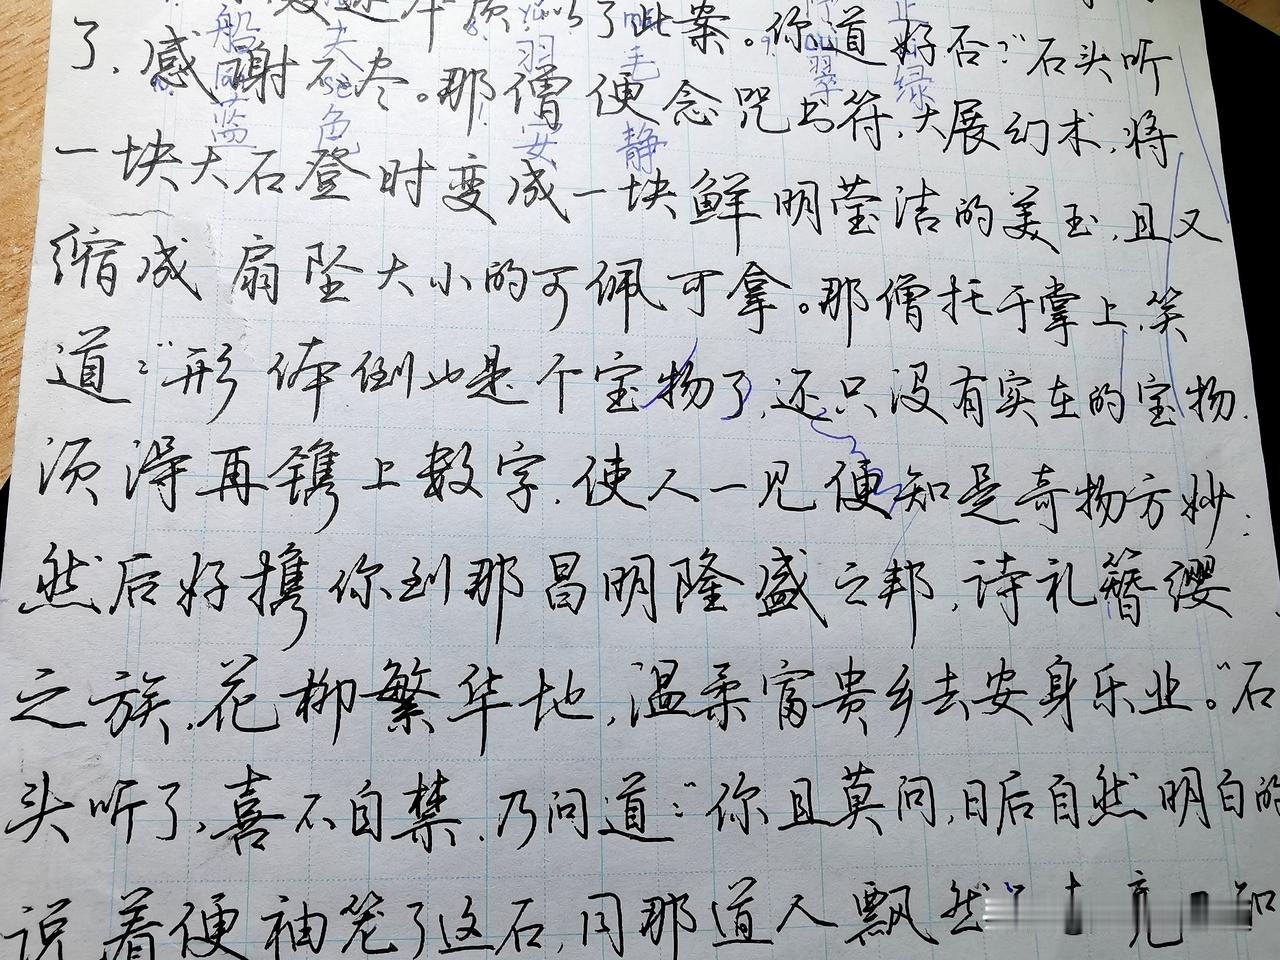 还本质,以了此案。你道好否?"石头听
了,感谢不尽。那僧便念咒书符,大展幻术,将
一块大石登时变成一块鲜明莹洁的美玉,且又
缩成扇坠大小的可佩可拿。那僧托于掌上,笑
道:"形体倒也是个宝物了,还只没有实在的宝物.
须得再镌上数字,使人一见便知是奇物方妙.
然后好携你到那昌明隆盛之邦,诗礼簪缨
之族,花柳繁华地,温柔富贵乡去安身乐业。"石
头听了,喜不自禁,乃问道:"你且莫问,日后自然明白的
说着便袖笼了这石,同那道人飘然
船 蓝
色
羽
安
毛
静
翠
绿